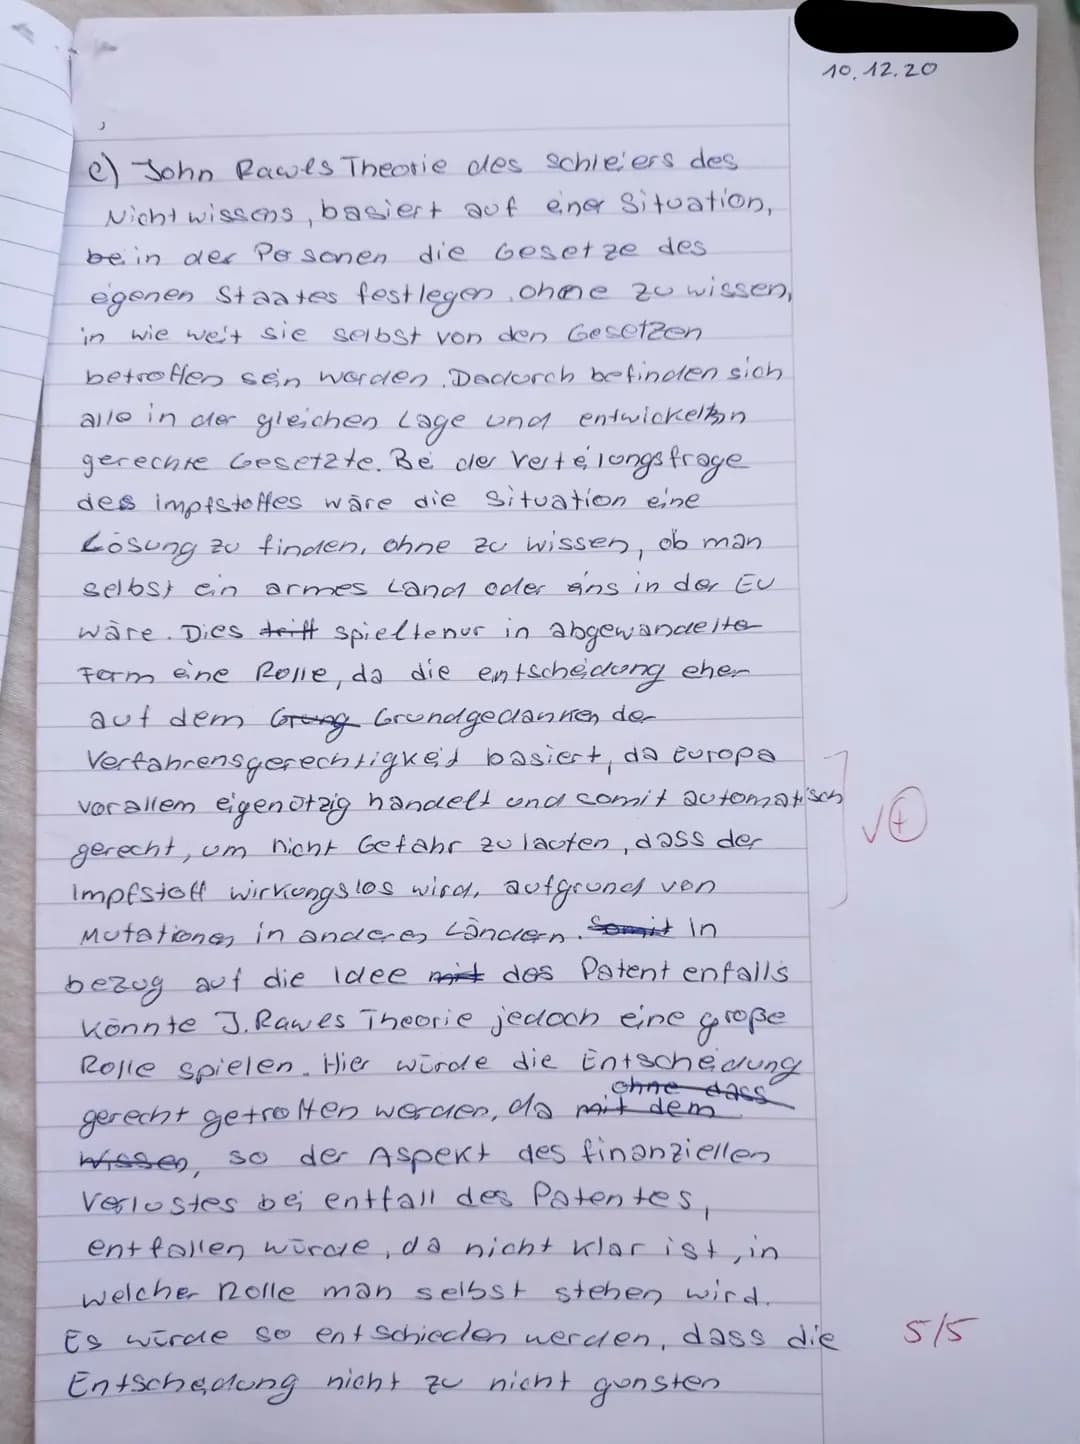 10.12.20
e) John Rawls Theorie des schleiers des
Nichtwissens, basiert auf einer Situation,
bei in der Personen die Gesetze des
eigenen Staates festlegen, ohne zu wissen,
in wie weit sie selbst von den Gesetzen
betroffen sein werden. Dadurch befinden sich
alle in der gleichen Lage und entwickeln
gerechte Gesetzte. Bei der Verteilungsfrage
des impfstoffes wäre die Situation eine
Lösung zu finden, ohne zu wissen, ob man
selbst ein armes Land oder eins in der EU
wäre. Dies trifft spielte nur in abgewandelter
Form eine Rolle, da die entscheidung eher
auf dem Grung Grundgedannken der
Verfahrensgerechtigkeit basiert, da Europa
vorallem eigenützig handelt und somit automatisch
gerecht, um nicht Gefahr zu laufen, dass der
Impfstoff wirkungslos wird, aufgrund von
Mutationen in anderen Ländern. Somit In
bezug auf die Idee mit des Patent enfalls
könnte J. Rawls Theorie jedoch eine große
Rolle spielen. Hier würde die Entscheidung
ohne dass
gerecht getroffen werden, da mit dem
wissen, so der Aspekt des finanziellen
Verlustes bei entfall des Patentes,
entfallen würde, da nicht klar ist, in
welcher Rolle man selbst stehen wird.
Es würde so entschieden werden, dass die
Entscheidung nicht zu nicht gunsten
√ +
5/5